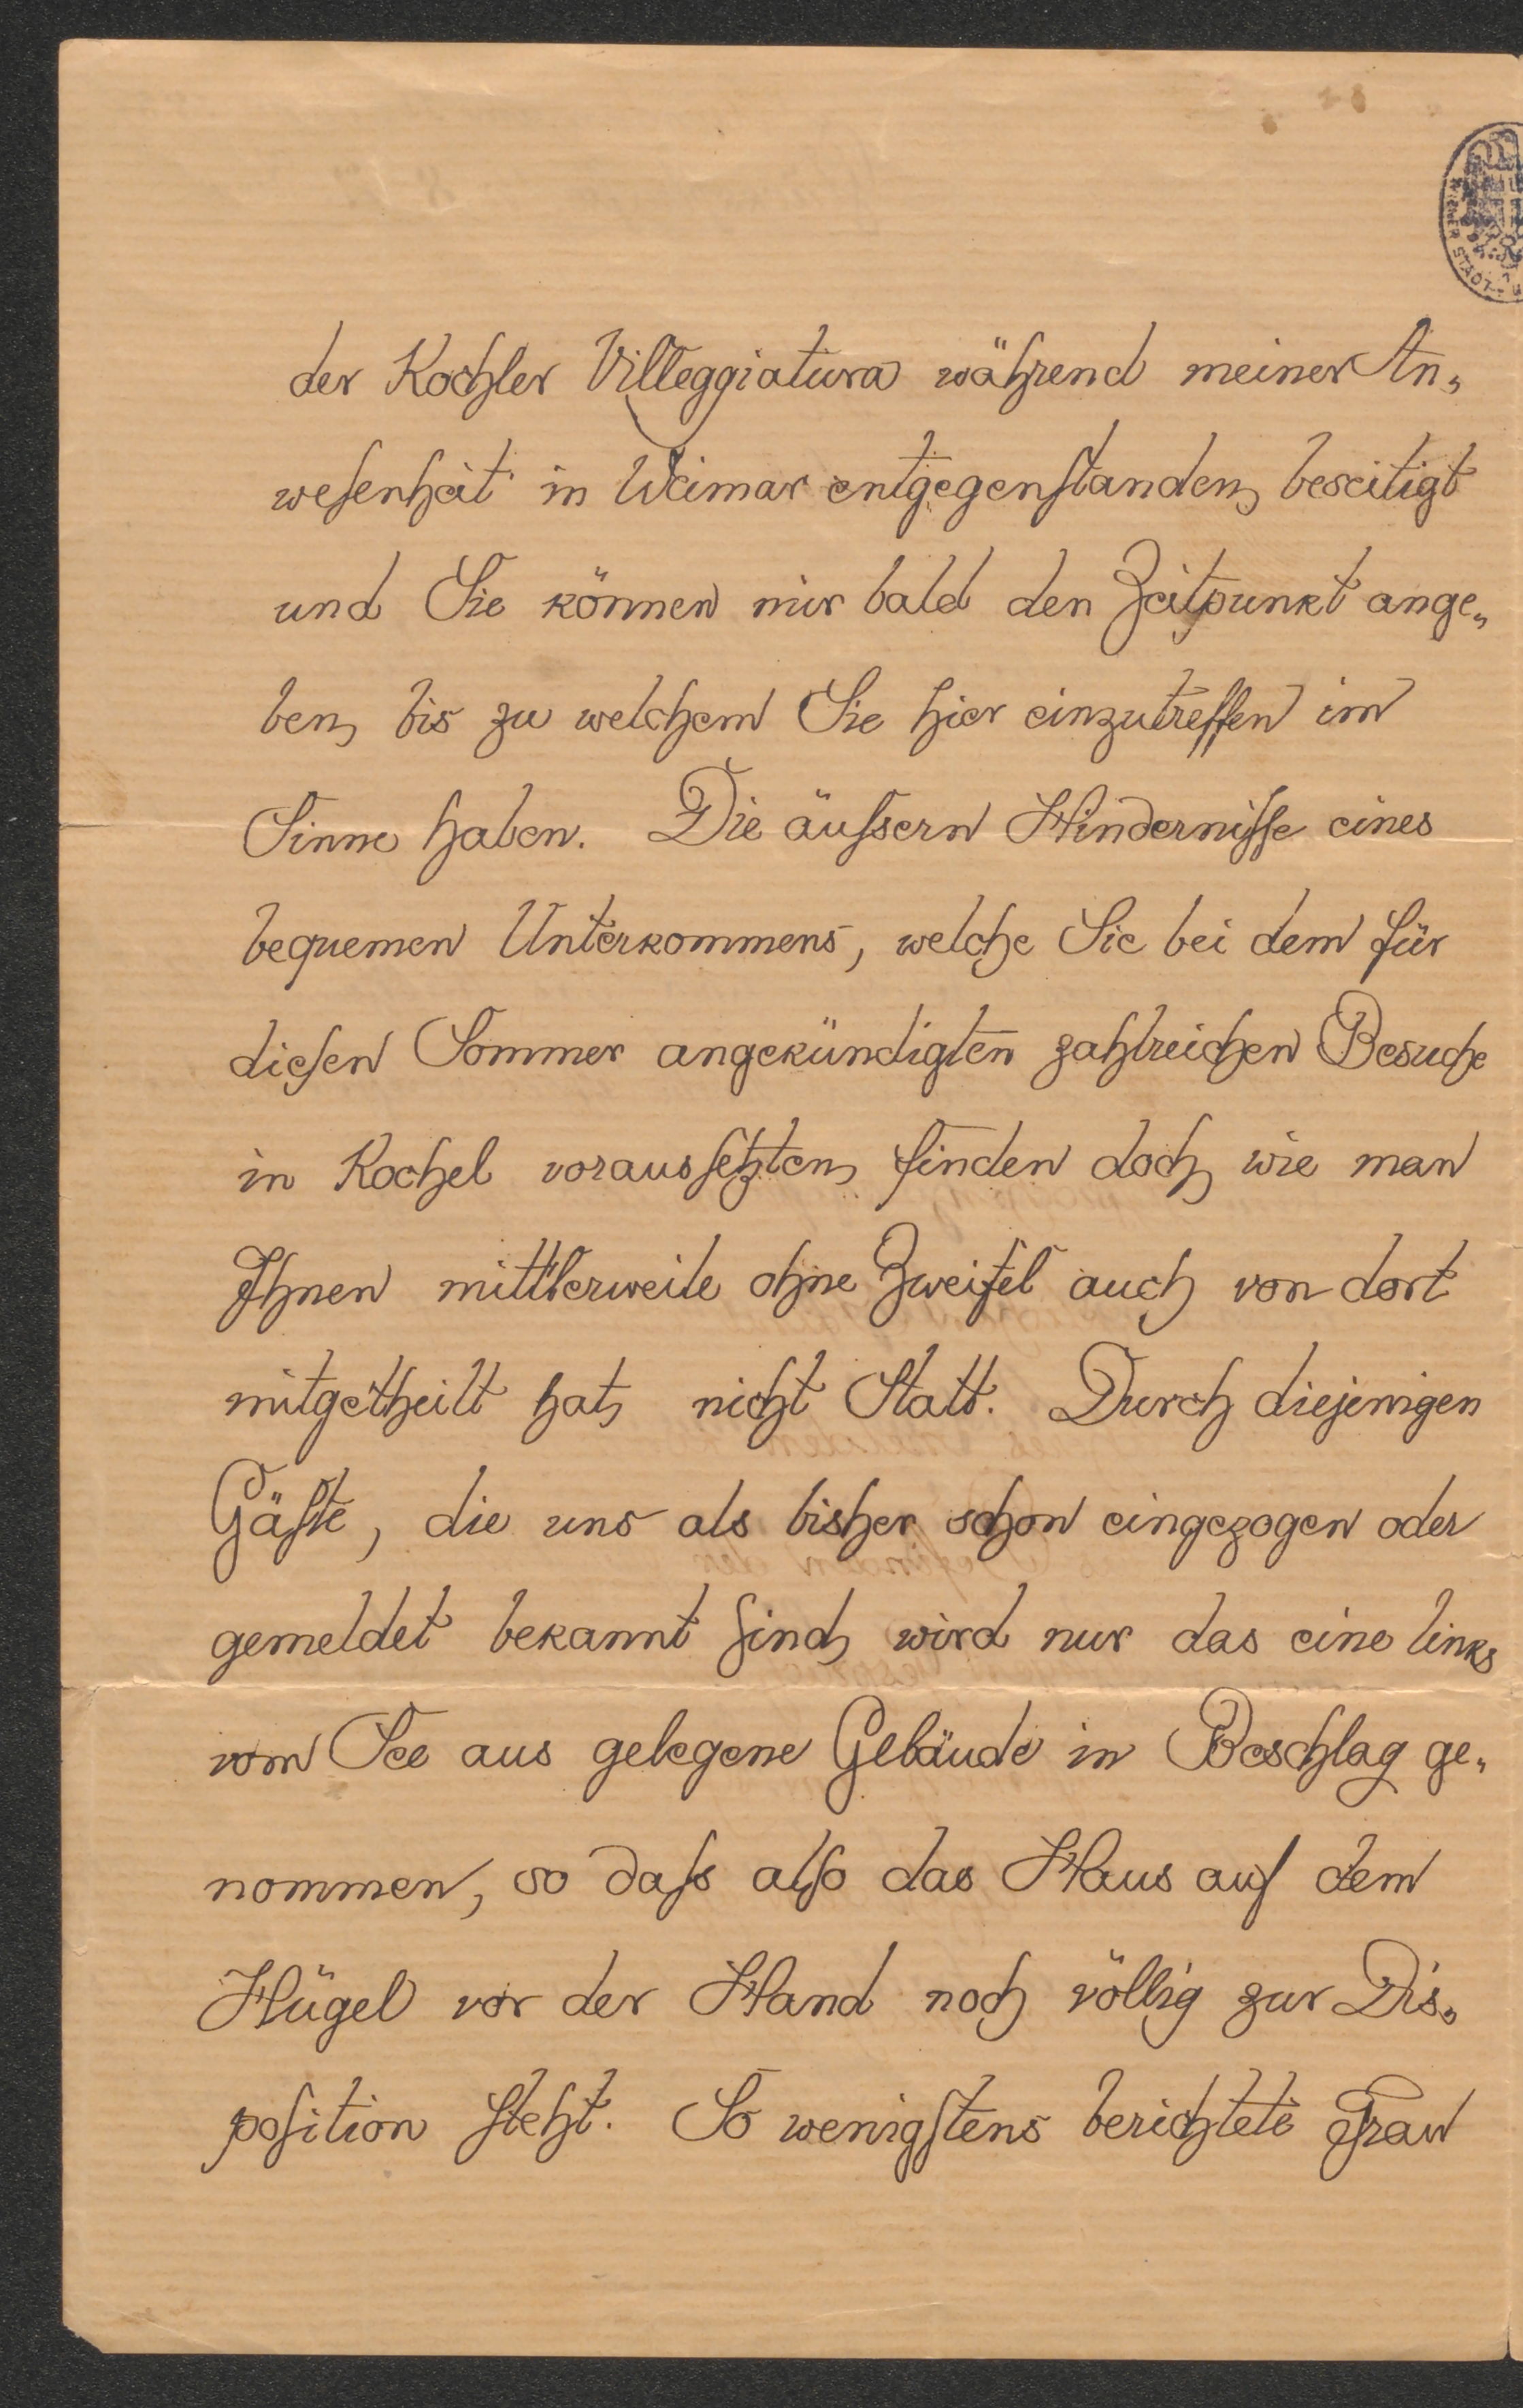 der Kochler Villeggiatura während meiner An„
wesenheit in Weimar entgegenstanden, beseitigt
und Sie können mir bald den Zeitpunkt ange„
ben, bis zu welchem Sie hier einzutreffen im
Sinne haben. Die äußern Hindernisse eines
bequemen Unterkommens, welche Sie bei dem für
diesen Sommer angekündigten zahlreichen Besuche
in Kochel voraussetzten, finden doch, wie man
Ihnen mittlerweile ohne Zweifel auch von dort
mitgetheilt hat, nicht Statt. Durch diejenigen
Gäste, die uns als bisher schon eingezogen oder
gemeldet bekannt sind, wird nur das eine links
vom See aus gelegene Gebäude in Beschlag ge„
nommen, so daß also das Haus auf dem
Hügel vor der Hand noch völlig zur Dis„
position steht. So wenigstens berichtete Frau